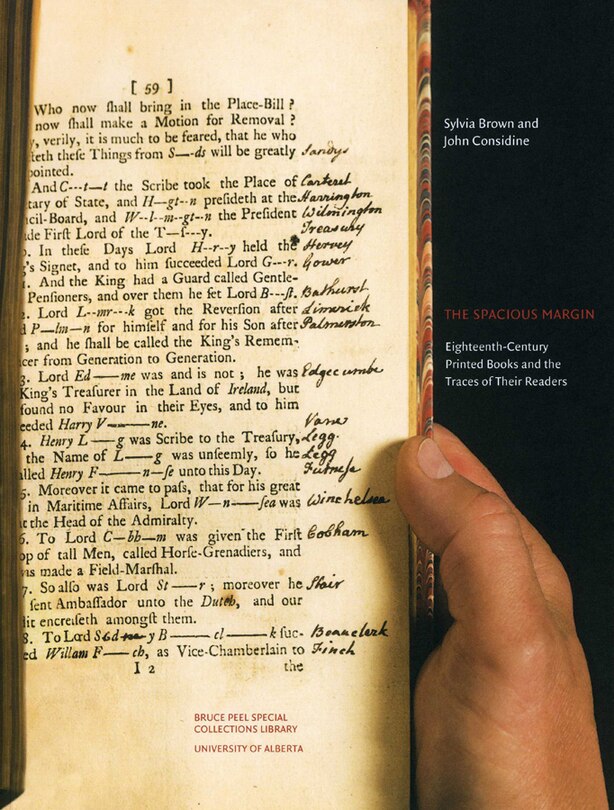 [ 59 ]
Who now ſhall bring in the Place-Bill ?
now ſhall make a Motion for Removal ?
y, verily, it is much to be feared, that he who
teth theſe Things from S—-ds will be greatly Sandys
pointed.
And C---t--t the Scribe took the Place of Carteret
tary of State, and H--gt--n preſideth at the Harrington
cil-Board, and W--l--m--gt--n the Preſident Wilmington
de Firſt Lord of the T—ſ---y. Treasury
. In theſe Days Lord H--r--y held the Hervey
's Signet, and to him ſucceeded Lord G---r. Gower
. And the King had a Guard called Gentle-
Penſioners, and over them he ſet Lord B---ſt. Bathurst
. Lord L--mr---k got the Reverſion after Limerick
d P—lm—n for himſelf and for his Son after Palmerston
; and he ſhall be called the King's Remem-
cer from Generation to Generation.
3. Lord Ed——me was and is not ; he was Edgecumbe
King's Treaſurer in the Land of Ireland, but
found no Favour in their Eyes, and to him
eeded Harry V———ne. Vane
4. Henry L——g was Scribe to the Treaſury, Legg.
the Name of L——g was unſeemly, ſo he Legg
alled Henry F———n—ſe unto this Day. Furnese
5. Moreover it came to paſs, that for his great
in Maritime Affairs, Lord W—n——ſea was Winchelsea
t the Head of the Admiralty.
6. To Lord C—bb—m was given the Firſt Cobham
op of tall Men, called Horſe-Grenadiers, and
was made a Field-Marſhal.
7. So alſo was Lord St——r ; moreover he Stair
ſent Ambaſſador unto the Dutch, and our
dit encreiſeth amongſt them.
8. To Lord Sidney B——cl———k ſuc- Beauclerk
ed Willam F——ch, as Vice-Chamberlain to Finch
I 2 the
Sylvia Brown and
John Considine
THE SPACIOUS MARGIN
Eighteenth-Century
Printed Books and the
Traces of Their Readers
BRUCE PEEL SPECIAL
COLLECTIONS LIBRARY
UNIVERSITY OF ALBERTA